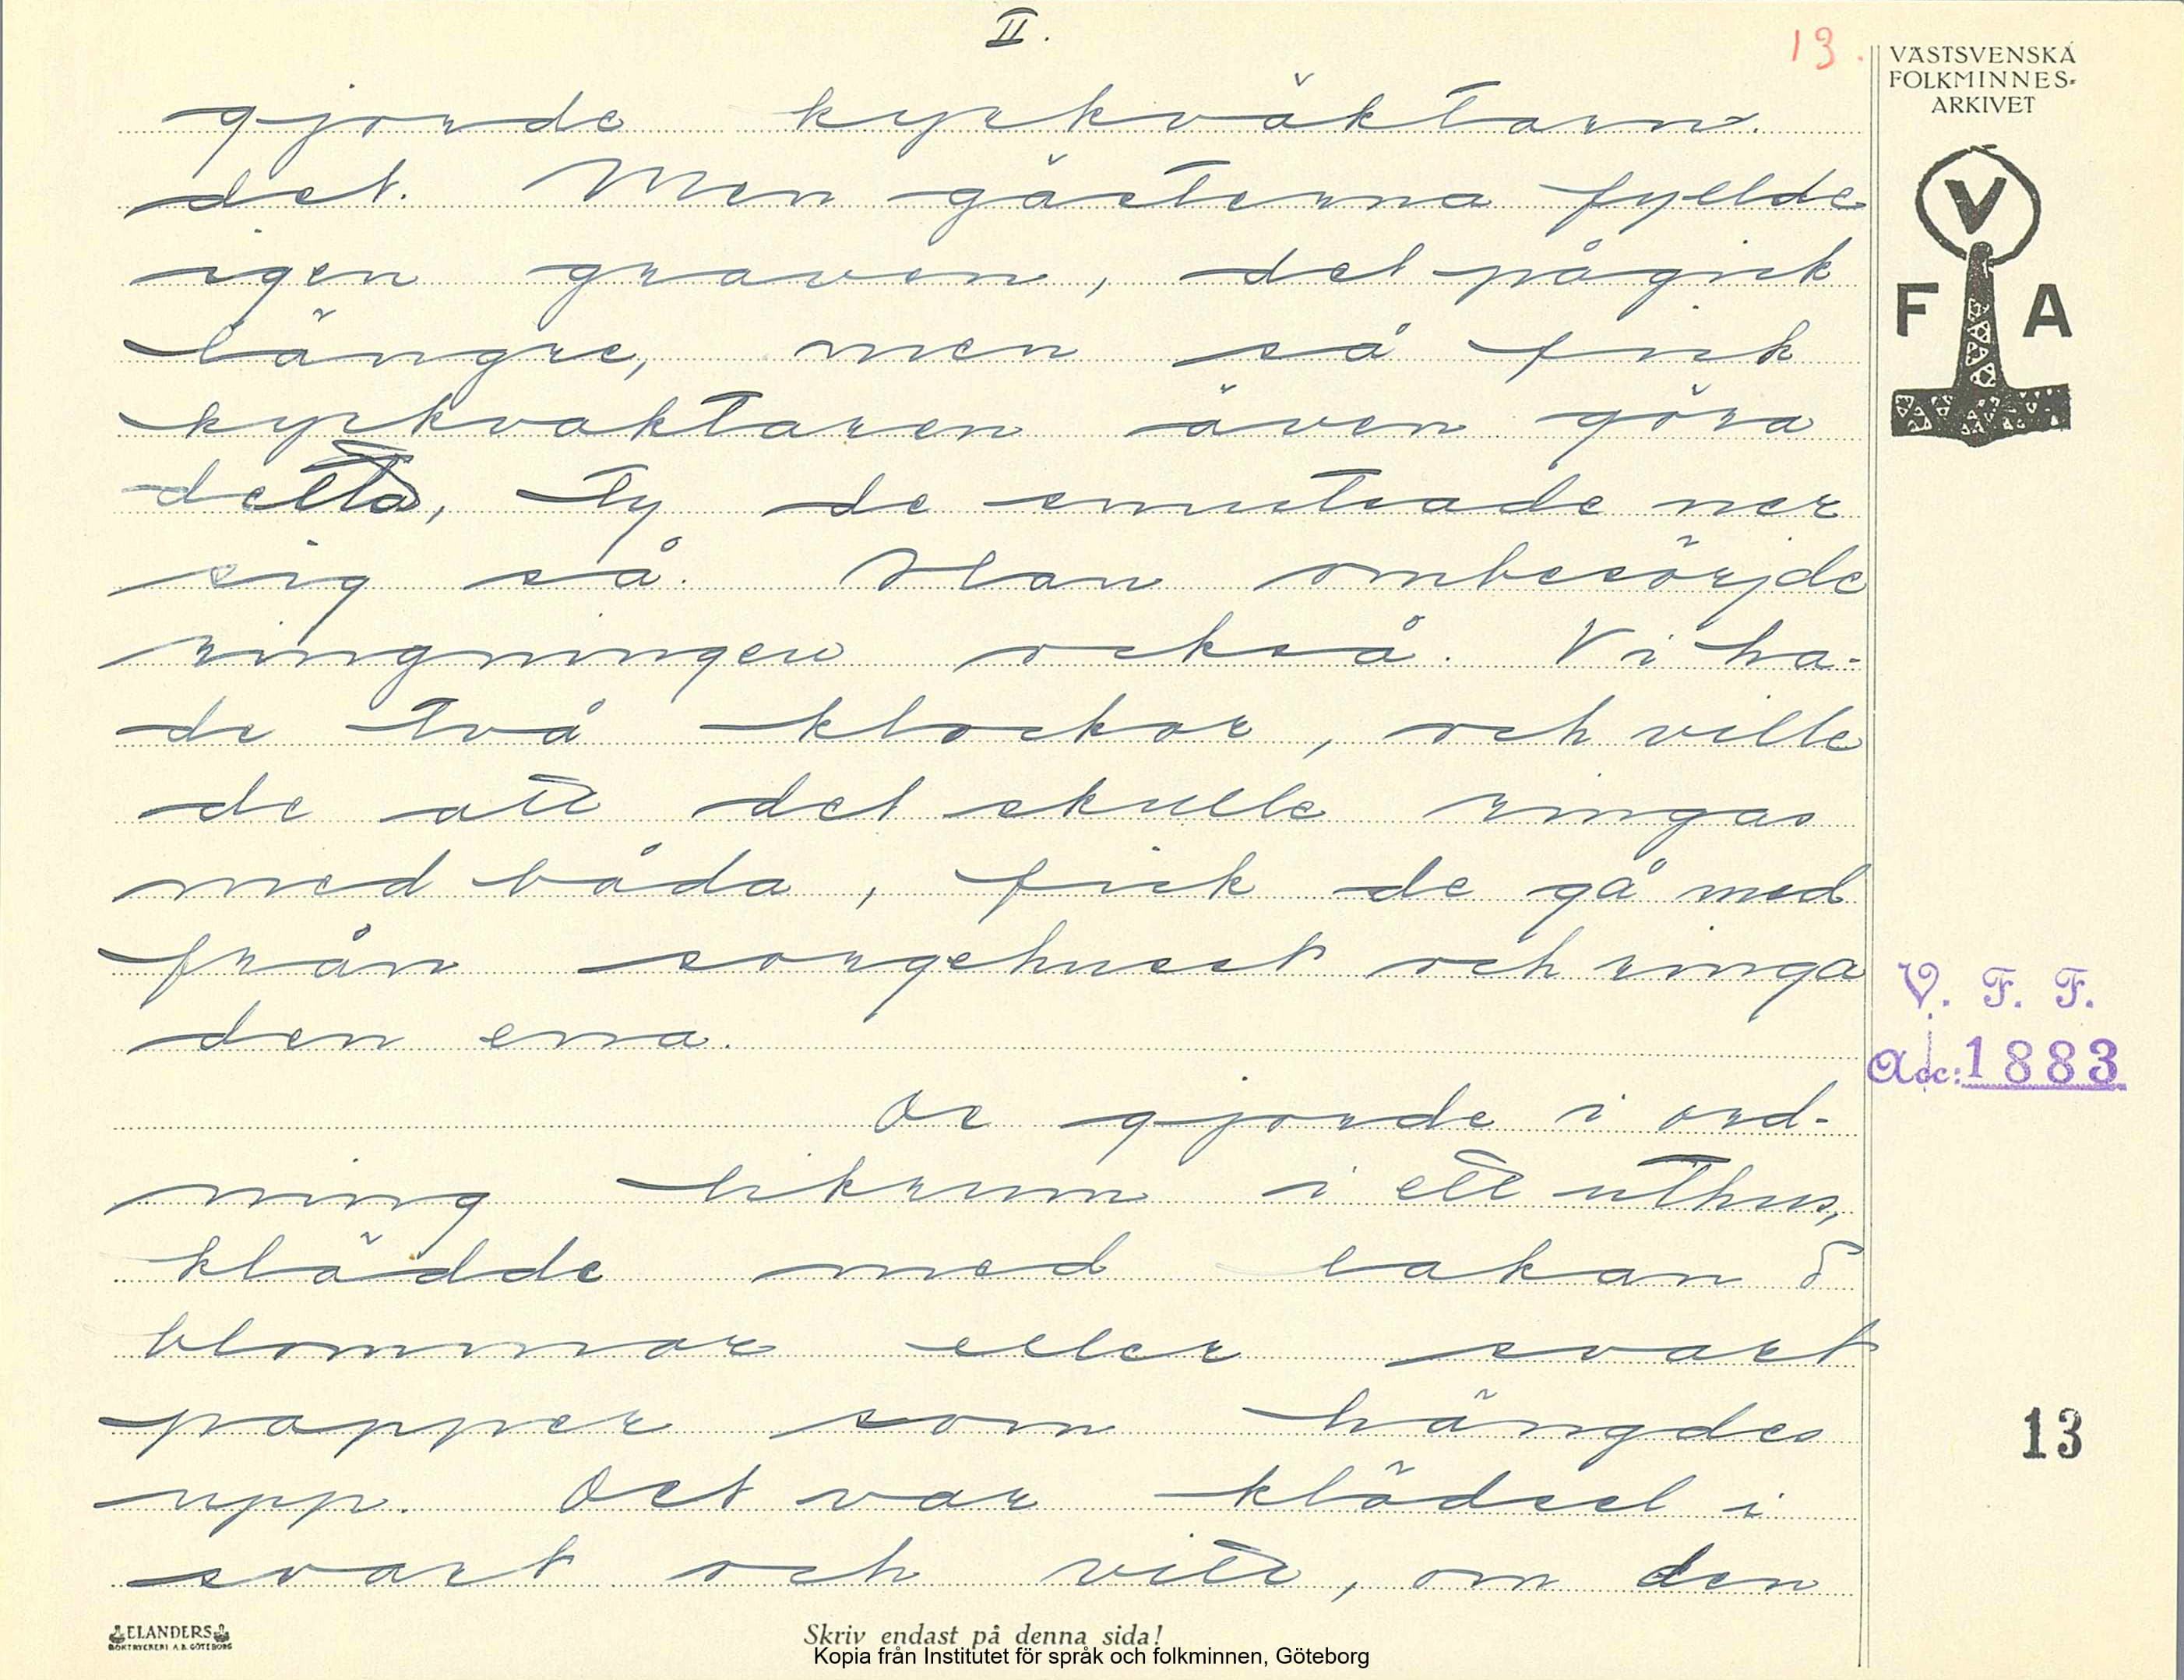 II.
13.
VÄSTSVENSKA
FOLKMINNES-
ARKIVET
V
F A
gjorde kyrkväktarn
det. Men gästerna fyllde
igen graven, det pågick
längre, men så fick
kyrkvaktaren även göra
detta, ty de smutsade ner
sig så. Han ombesörjde
ringningen också. Vi ha-
de två klockor, och ville
de att det skulle ringas
med båda, fick de gå med
från sorgehuset och ringa
den ena.
V. F. F.
Acc: 1883
De gjorde i ord-
ning likrum i ett uthus,
klädde med lakan &
blommor eller svart
papper som hängdes
upp. Det var klädsel i
svart och vitt, om den
13
ELANDERS
BOKTRYCKERI A.B. GÖTEBORG
Skriv endast på denna sida!
Kopia från Institutet för språk och folkminnen, Göteborg